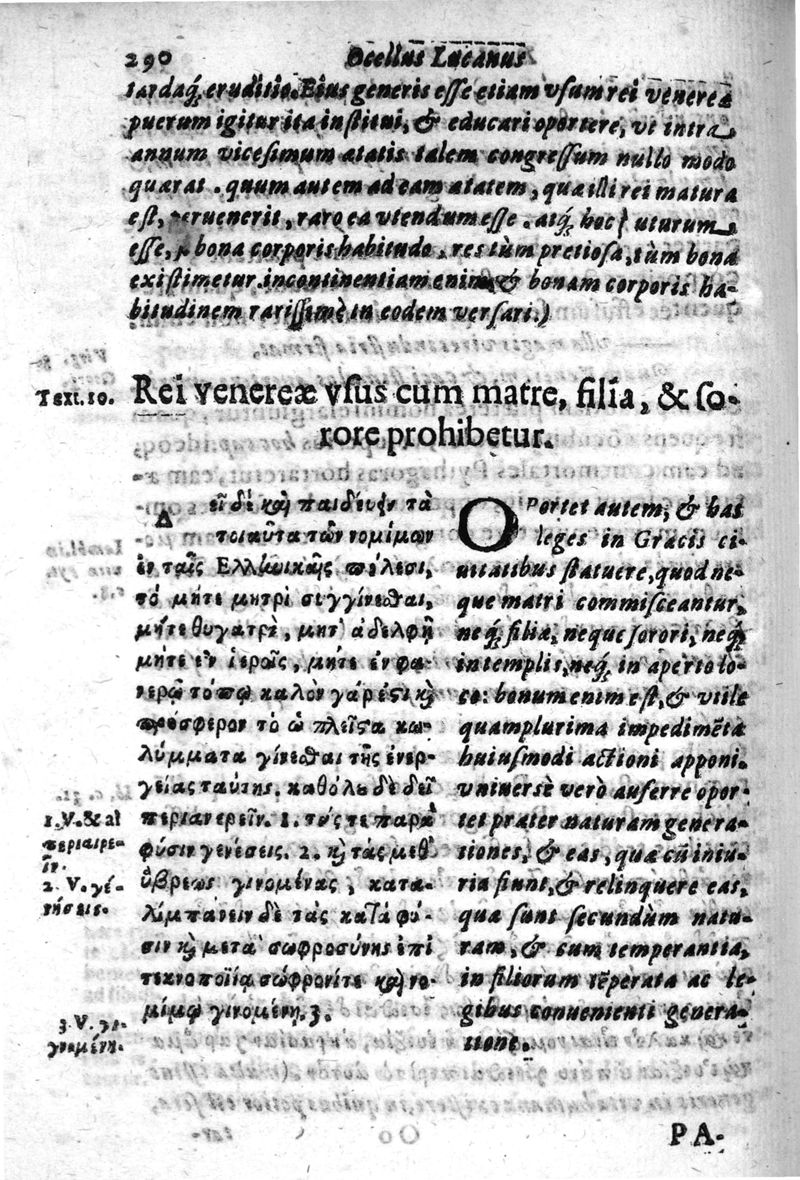 290 Ocellus Lucanus
tardaq́; eruditio. Eius generis esse etiam vsum rei venereæ
puerum igitur ita institui, & educari oportere, vt intra
annum vicesimum ætatis talem congressum nullo modo
quærat. quum autem ad eam ætatem, quæ illi rei matura
est, peruenerit, raro ea vtendum esse. atq́; hoc futurum
esse, si bona corporis habitudo, res tùm pretiosa, tùm bona
existimetur. incontinentiam enim, & bonam corporis ha-
bitudinem rarissimè in eodem versari.)
Text. 10. Rei venereæ vsus cum matre, filia, & so-
rore prohibetur.
Δεῖ δὲ καὶ παιδεύειν τὰ
τοιαῦτα τῶν νομίμων
ἐν ταῖς Ἑλληνικαῖς πόλεσι,
τὸ μήτε μητρὶ συγγίνεσθαι,
μήτε θυγατρὶ, μήτ' ἀδελφῇ
μήτε ἐν ἱεροῖς, μήτε ἐν φα-
νερῷ τόπῳ καλὸν γάρ ἐστι καὶ
πρόσφερον τὸ ὡ πλεῖστα κω-
λύμματα γίνεσθαι τῆς ἐνερ-
γείας ταύτης. καθόλου δὲ δεῖ
περιανερεῖν. 1. τάς τε παρὰ
φύσιν γενέσεις. 2. καὶ τὰς μεθ'
ὕβρεως γινομένας, κατα-
λιμπάνειν δὲ τὰς κατὰ φύ-
σιν καὶ μετὰ σωφροσύνης ἐπὶ
τεκνοποιΐα σώφρονίτε καὶ νο-
μίμῳ γινομένη. 3.
1. V. & al
περιαιρε-
ῖν.
2. V. γέν-
νήσεις.
3. V. γι-
νομένῃ.
OPortet autem, & has
leges in Græcis ci-
uitatibus statuere, quod ne-
que matri commisceantur,
neq́; filiæ, neque sorori, neq́;
in templis, neq́; in aperto lo-
co: bonum enim est, & vtile
quamplurima impedimẽta
huiusmodi actioni apponi.
vniuersè verò auferre opor-
tet præter naturam genera-
tiones, & eas, quæ cũ iniu-
ria fiunt, & relinquere eas,
quæ sunt secundùm natu-
ram, & cum temperantia,
in filiorum tẽperata ac le-
gibus conuenienti genera-
tione.
PA-